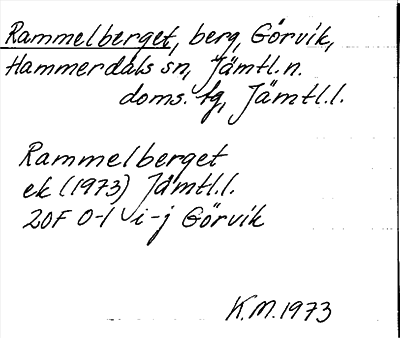 Rammelberget, berg, Görvik,
Hammerdals sn, Jämtl. n.
doms. tg, Jämtl. l.
Rammelberget
ek (1973) Jämtl. l.
20F 0-1 i-j Görvik
K.M. 1973